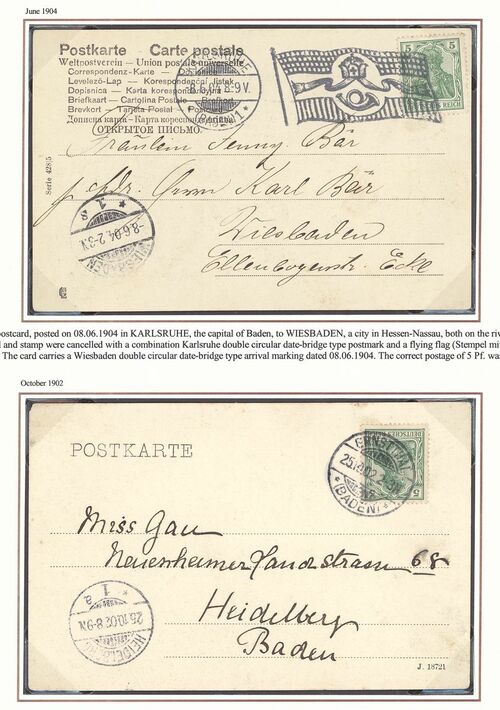 June 1904
Postkarte — Carte postale
Weltpostverein — Union postale universelle
Correspondenz-Karte —
Levelező-Lap — Korespondenční lístek
Dopisnica — Karta korespondencyjna
Briefkaart — Cartolina Postale
Brevkort — Tarjeta Postal —
Дописна карта — Карта кореспонденційна
ОТКРЫТОЕ ПИСЬМО.
8.6.04.8-9V.
(BADEN) 1
5 5
REICH
Serie 428|5
Fräulein Jenny Bär
p. Adr. Herrn Karl Bär
Wiesbaden
Ellenbogenstr. Ecke
* 1 *
a
-8.6.04.2-3N.
WIESBADEN
postcard, posted on 08.06.1904 in KARLSRUHE, the capital of Baden, to WIESBADEN, a city in Hessen-Nassau, both on the riv
l and stamp were cancelled with a combination Karlsruhe double circular date-bridge type postmark and a flying flag (Stempel mi
The card carries a Wiesbaden double circular date-bridge type arrival marking dated 08.06.1904. The correct postage of 5 Pf. wa
October 1902
POSTKARTE
25.10.02.
*(BADEN)*
Miss Gau
Neuenheimer Landstrasse 68
Heidelberg
Baden
* 1
a
25.10.02.8-9N.
HEIDELBERG
J. 18721